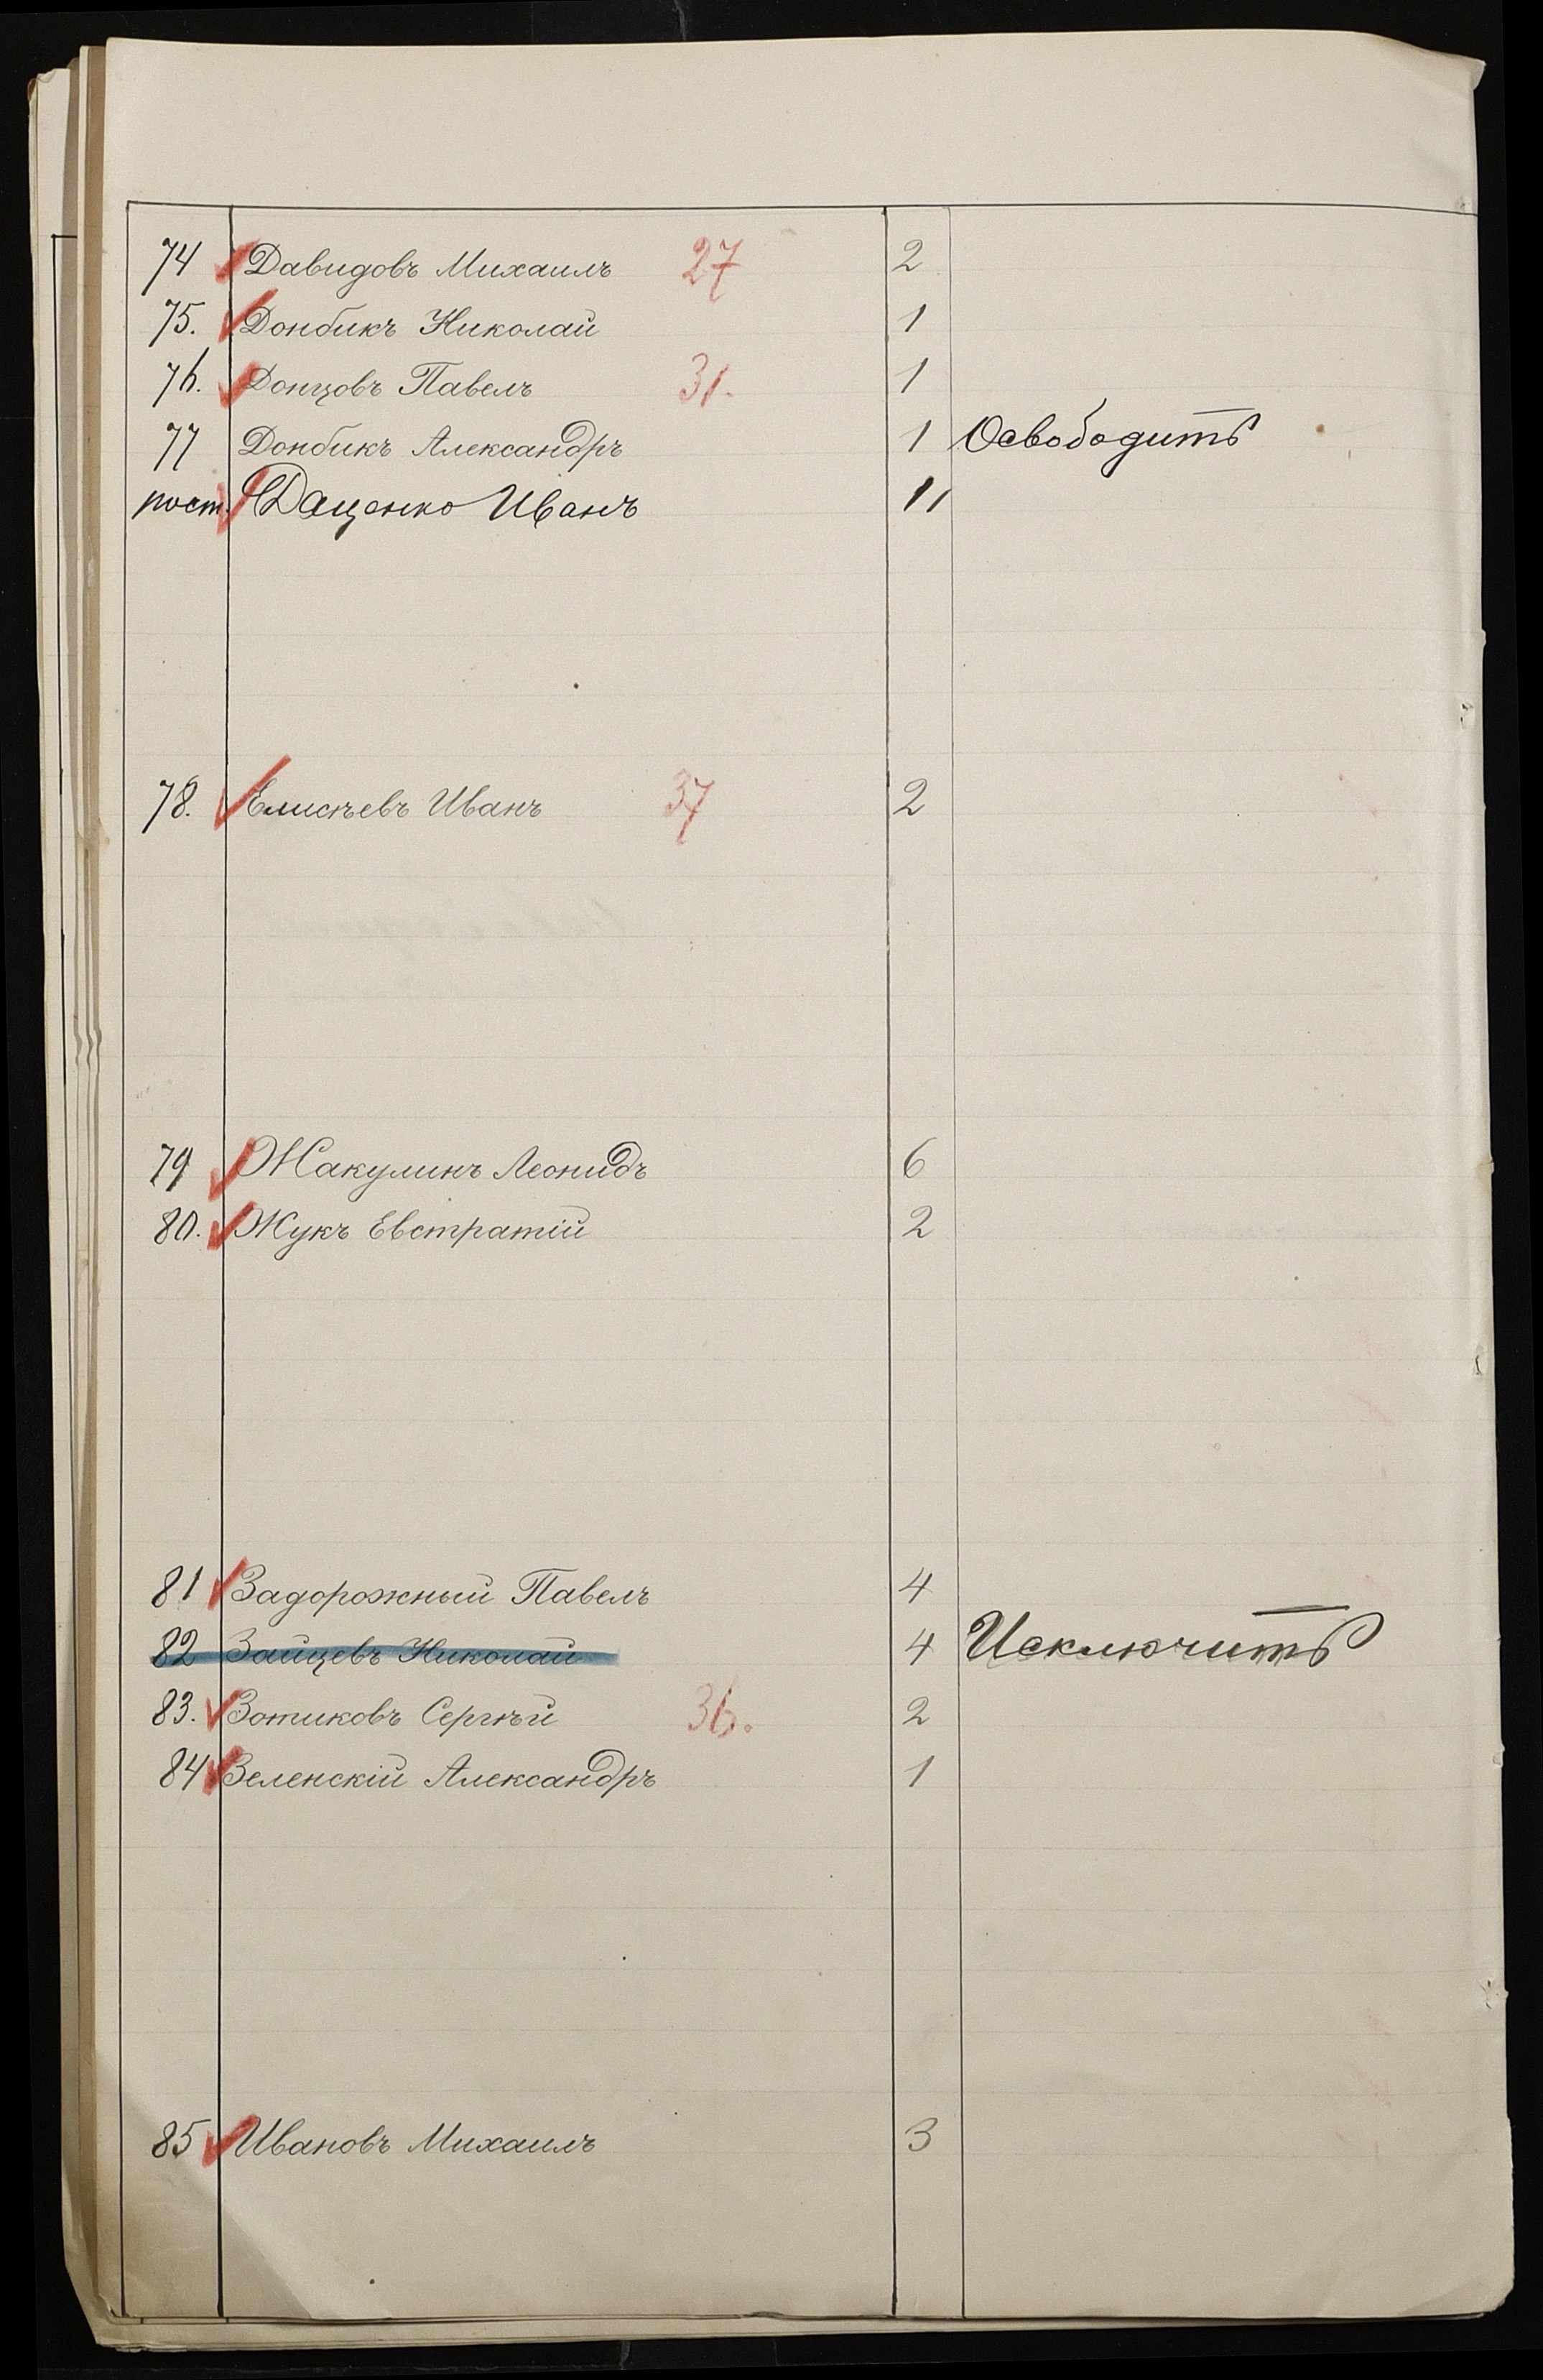 74 Давидовъ Михаилъ 27 2
75. Донбикъ Николай 1
76. Донцовъ Павелъ 31. 1
77 Донбикъ Александръ 1 Освободить
пост. Даценко Иванъ 11
78. Елисѣевъ Иванъ 37 2
79 Жакулинъ Леонидъ 6
80. Жукъ Евстратій 2
81 Задорожный Павелъ 4
82 Зайцевъ Николай 4 Исключить
83. Зотиковъ Сергѣй 36. 2
84 Зеленскій Александръ 1
85 Ивановъ Михаилъ 3